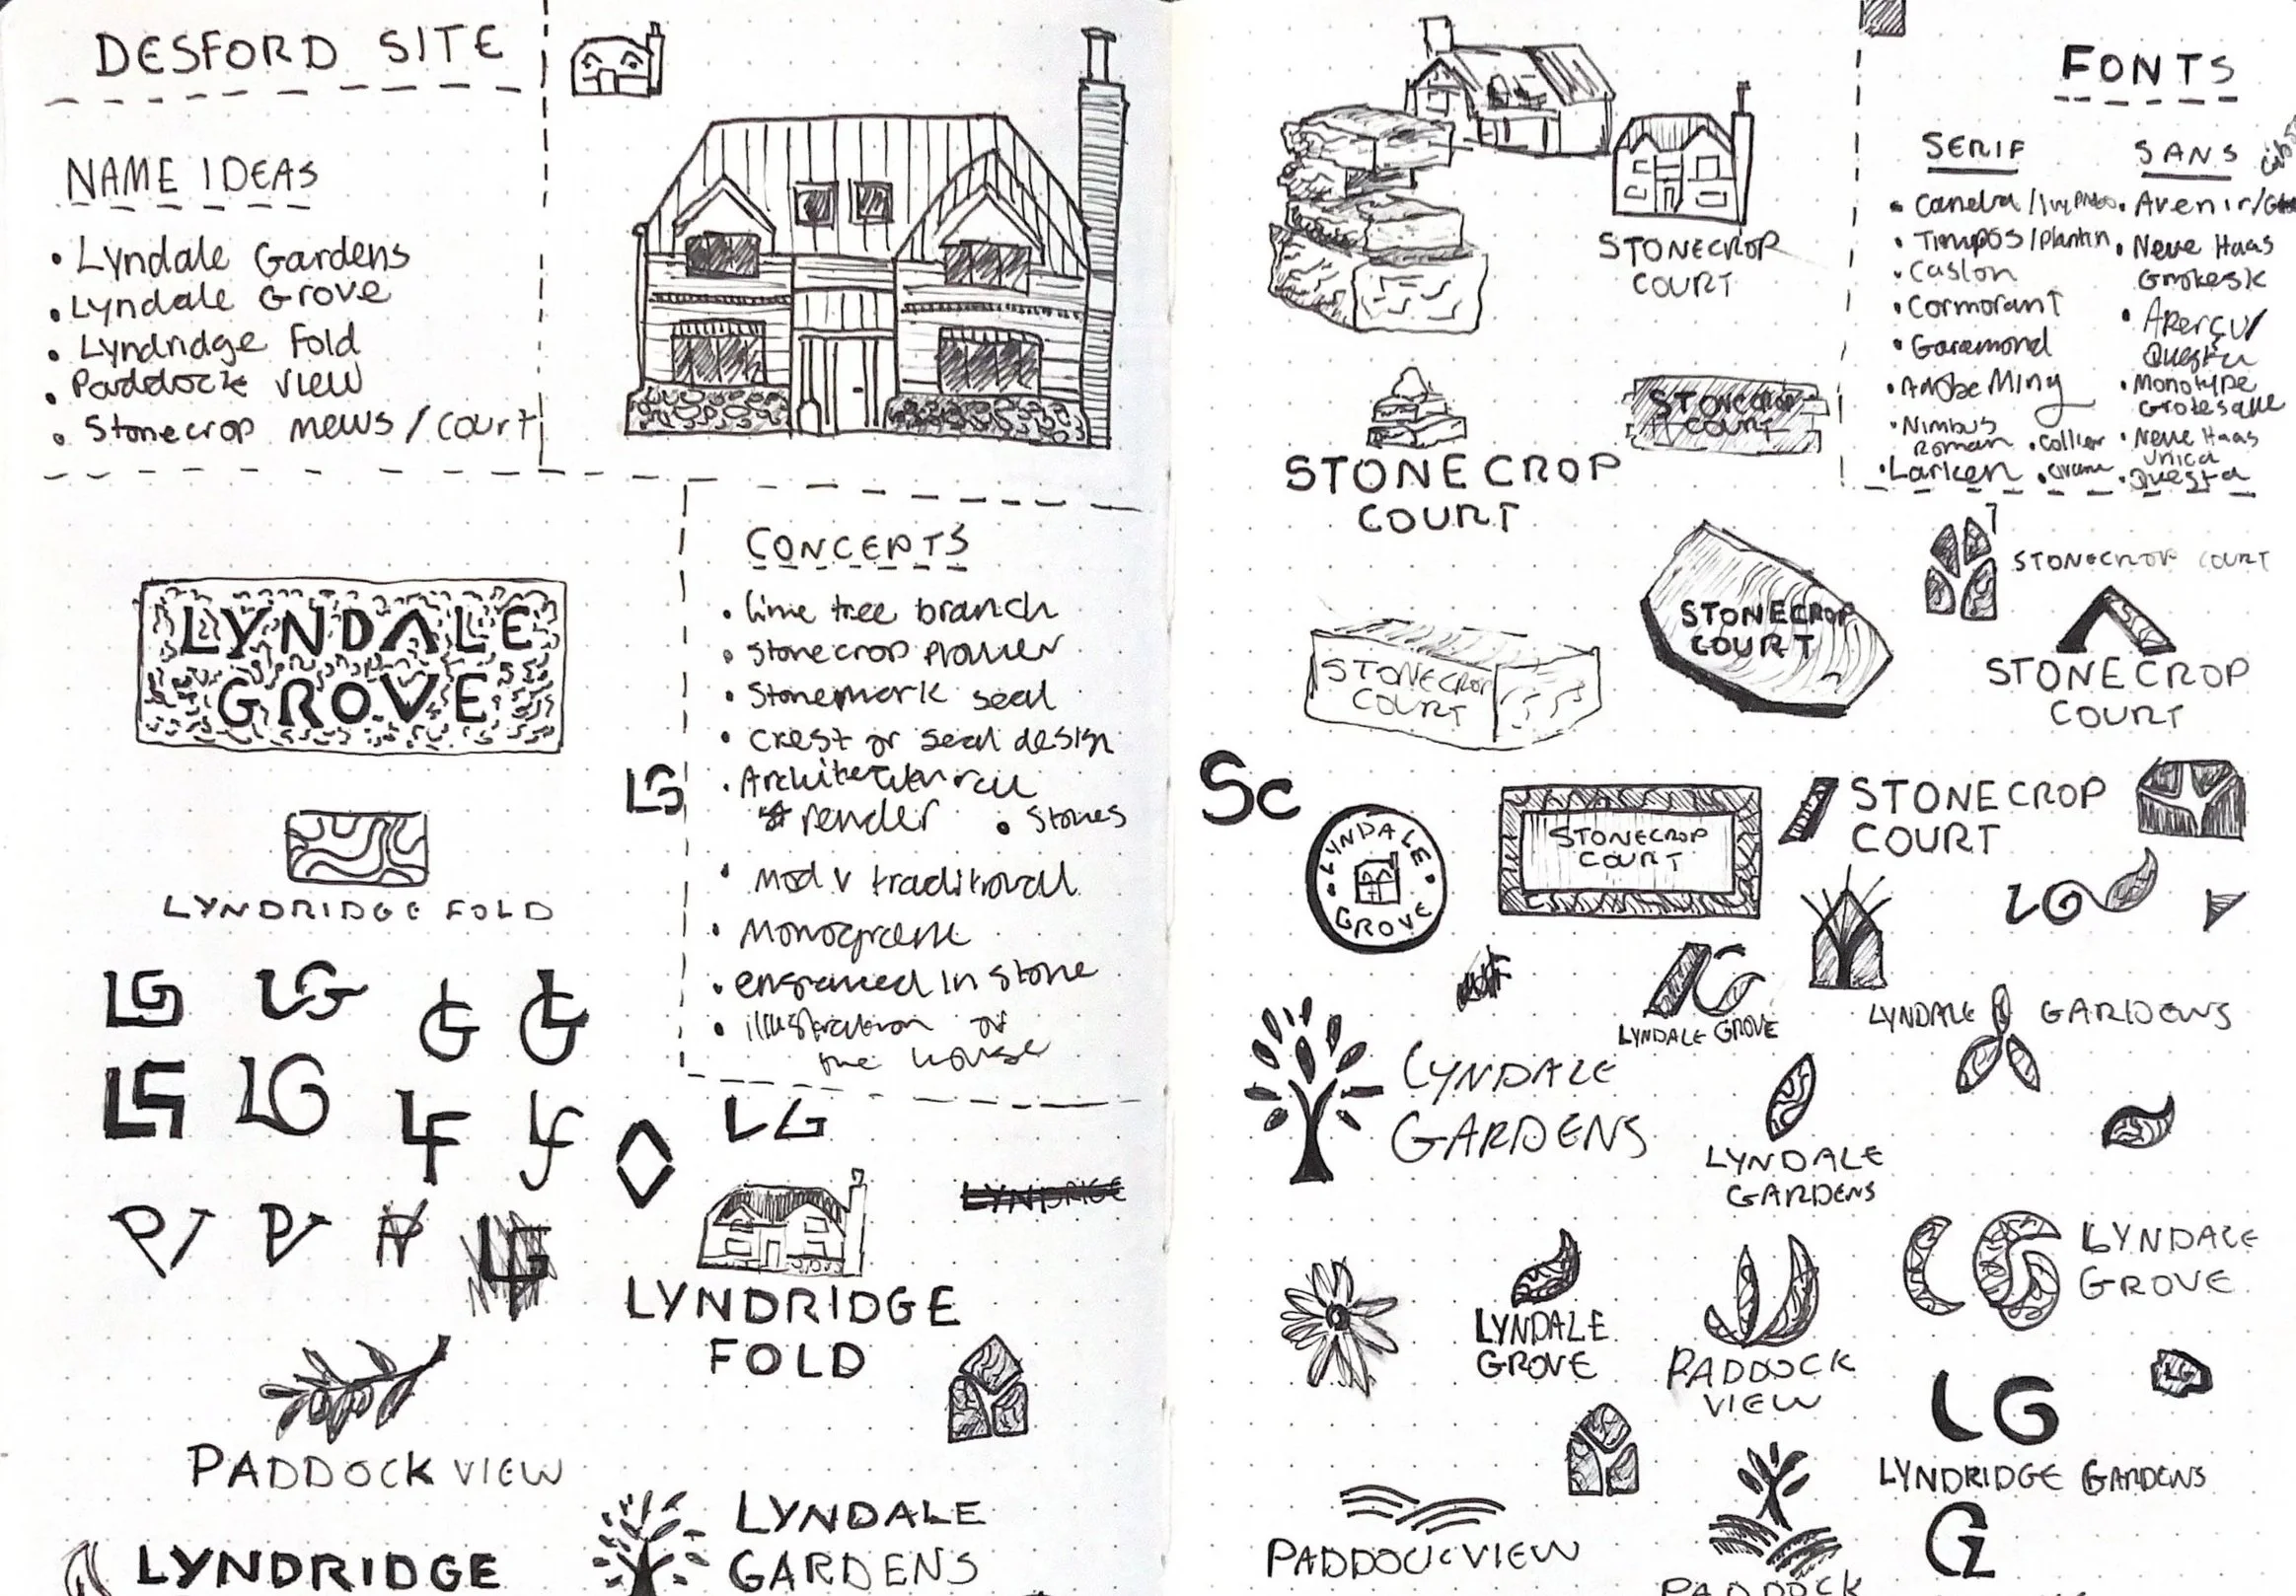 DESFORD SITE
NAME IDEAS
• Lyndale Gardens
• Lyndale Grove
• Lyndridge Fold
• Paddock view
• Stonecrop mews / court
LYNDALE
GROVE
LYNDRIDGE FOLD
LG LG LG LG
LG LG LF LF
PV PV PV LG
PADDOCK VIEW
LYNDRIDGE
CONCEPTS
• lime tree branch
• stonecrop flower
• Stonemark seal
• crest or seal design
• Architectural
render • Stones
• Mod v traditional
• Monogram
• engraved in stone
• illustration of
the house
LG
LG
LYNDRIGE
LYNDRIDGE
FOLD
LYNDALE
GARDENS
STONECROP
COURT
STONECROP
COURT
STONECROP
COURT
FONTS
SERIF
• Canela /
• Tiempos / Plantin
• Caslon
• Cormorant
• Garamond
• Adobe Ming
• Nimbus
Roman
• Larken
SANS
• Avenir /
• Neue Haas
Grotesk
• Apercu /
Questa
• Monotype
Grotesque
• Neue Haas
Unica
• Questa
STONECROP
COURT
STONECROP
COURT
STONECROP COURT
STONECROP
COURT
Sc
LYNDALE
GROVE
STONECROP
COURT
STONECROP
COURT
LG
LG
LYNDALE GROVE
LYNDALE GARDENS
LYNDALE
GARDENS
LYNDALE
GARDENS
LYNDALE
GROVE
PADDOCK
VIEW
LYNDALE
GROVE
LG
LG
LYNDRIDGE GARDENS
PADDOCK VIEW
PADDOCK